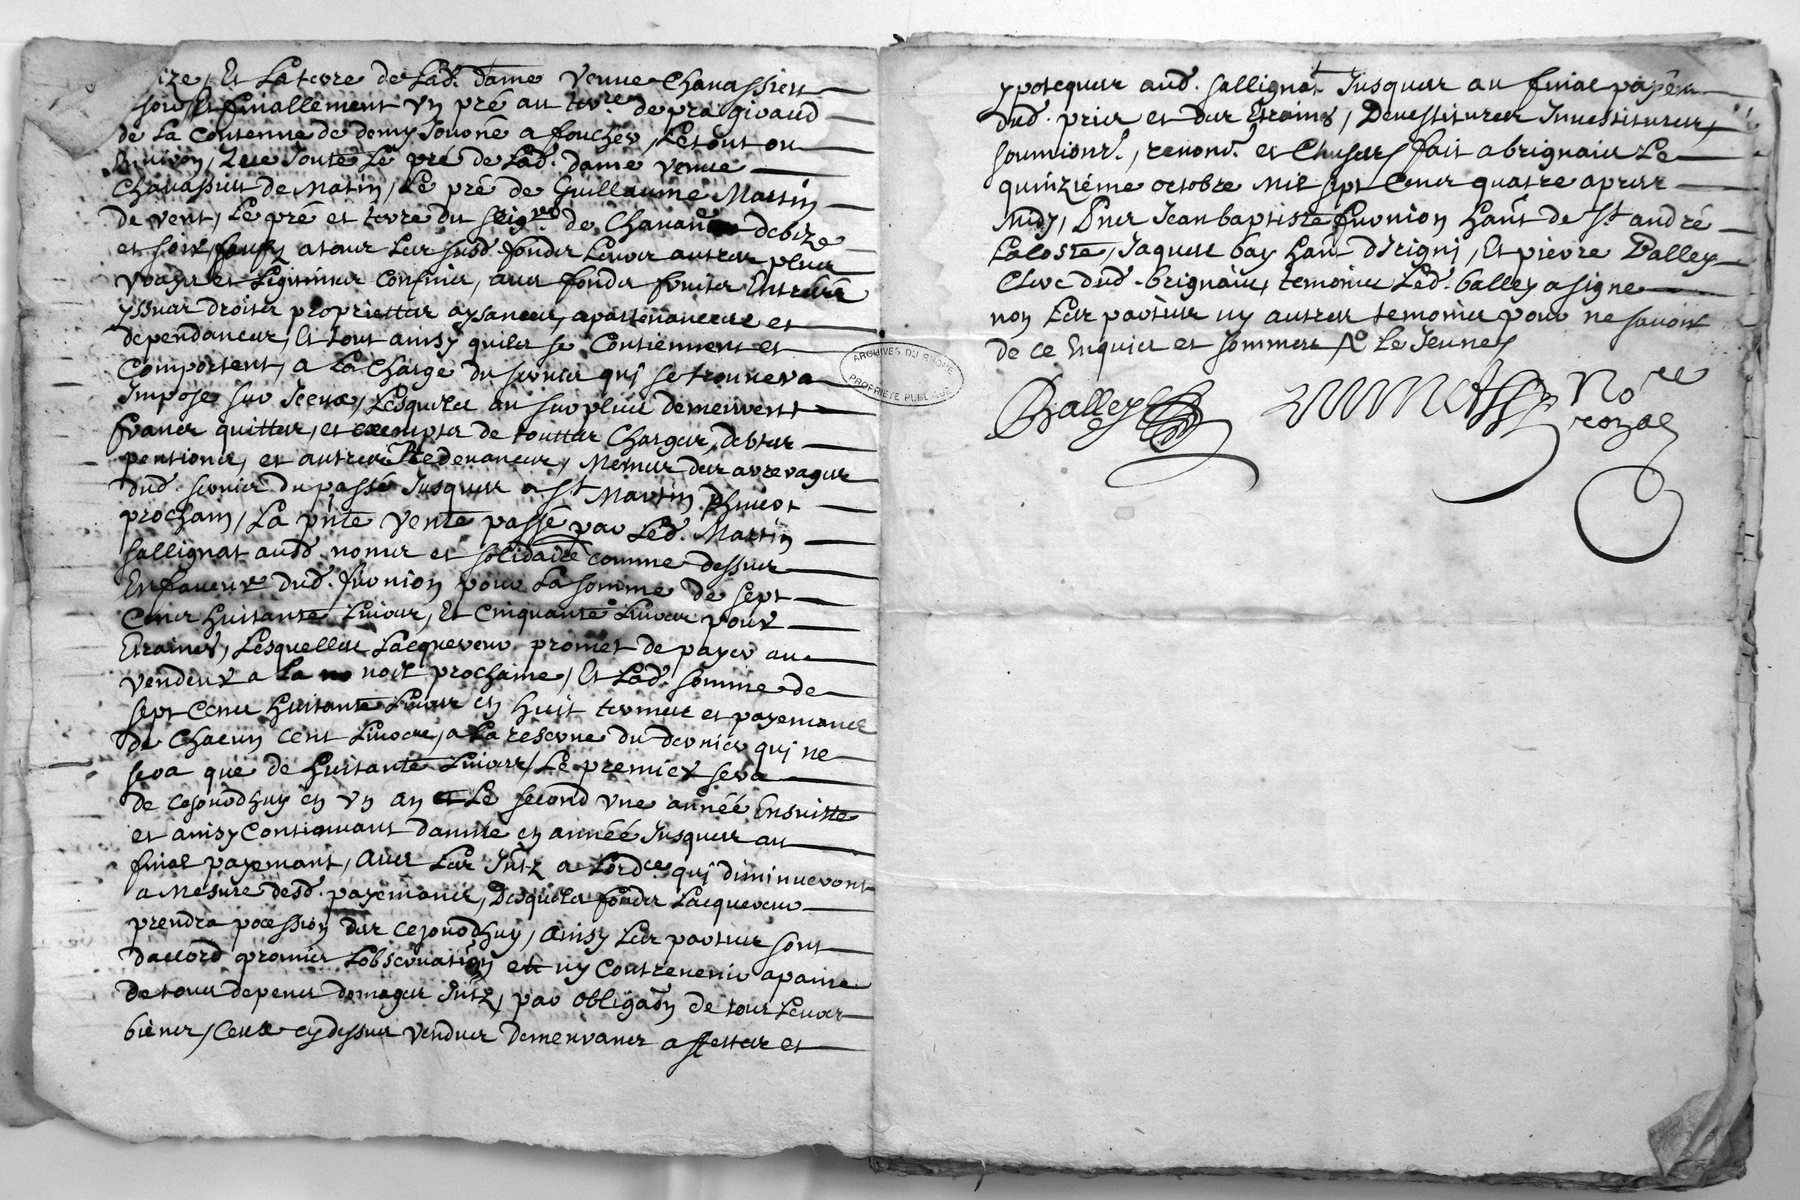 ize, Et La terre de Lad. dame Veuve Chavassieu
soir et finallement Un pré au terre. de pragivaud
de La Contenue de demy Journé a faucher, Le tout ou
Environ, Que Joute Le pré de Lad. dame veuve
Chavassieu de Matin, Le pré de Guillaume Martin
de vent, Le pré et terre du seigr. de Chavan debize
et soir, sauf a tous Les susd. fonds Leurs autres plus
Vrays et Legitimes Confins, avec fonds fruits Entrées
yssues droits proprietter aysances, apartenances et
dependances, Et tout ainsy quils se Contiennent et
Comportent, a La Charge du servis qui se trouvera
Imposé sur Iceux, Lesquels au surplus demeurent
francs quittes, et exempts de touttes Charges, debtes
pentions, et autres Redevances, Mesmes des arrerages
dud. servis du passé Jusques a St Martin
prochain, La pñte Vente passé par Led. Martin
sallignat aud. noms et solidaire comme dessus
En faveur dud. furnion pour La somme de sept
Cens huitante Livres, Et Cinquante Livres pour
Etraines, Lesquelles Lacquereur promet de payer au
vendeur a La noel prochaine, Et Lad. somme de
sept Cens huitante Livres en huit termes et payemans
de Chacun cent Livres, a La reserve du dernier qui ne
sera que de huitante Livres, Le premier sera
de cejourdhuy en Un an et Le second Une année Ensuitte
et ainsy Continuant dannée en année Jusques au
final payemant, avec Les Intz a Lordce. qui diminueront
a Mesure desd. payemans, Desquels fonds Lacquereur
prendra pocession dez cejourdhuy, ainsy Les parties sont
daccord promis Lobservation et ny Contrevenir a paine
de tous depens domages Intz, par obligaon de tous Leurs
biens, Ceux cy dessus vendus demeurans affettes et
ypotequés aud. sallignat Jusques au final payem
dud. prix et des Etraines, Devestitures Investitures,
soumions., renons. et Clauses, fait a brignais Le
quinziéme octobre Mil sept Cens quatre apres
Midy, Pns Jean baptiste furnion hant de St. andré
Lacoste, Jaques bay hant dIrigni, Et pierre Balley
Clerc dud. brignais, temoins Led. balley a signe
non Les parties ny autres temoins pour ne savoir
de ce Enquis et sommes
ARCHIVES DU RHONE
PROPRIETE PUBLIQUE
Balley
Nore
royal